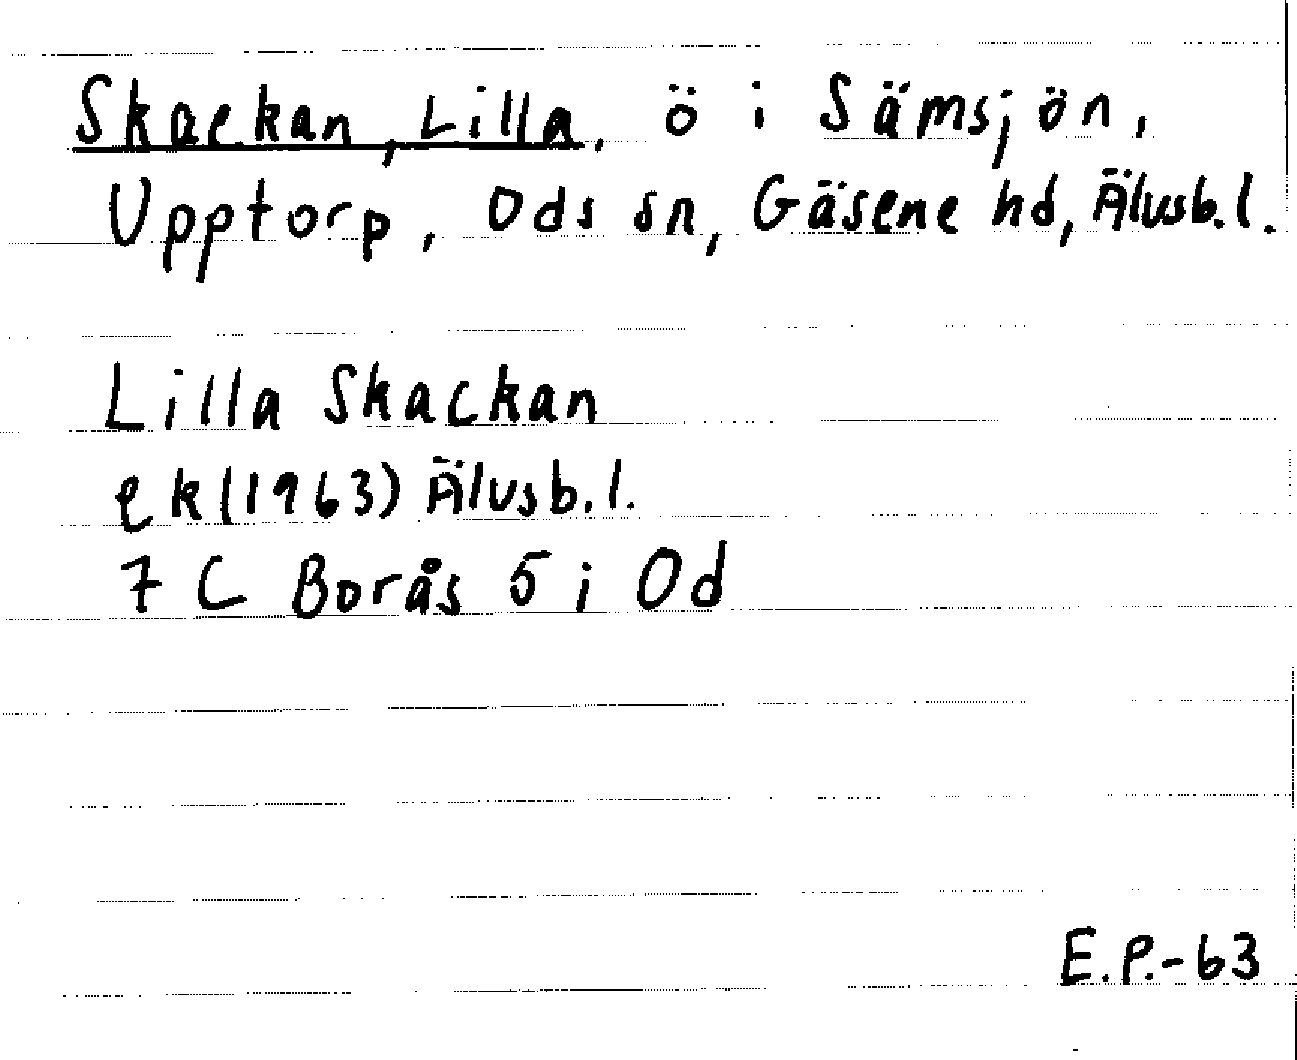 Skackan, Lilla, ö i Sämsjön,
Upptorp, Ods sn, Gäsene hd, Älvsb.l.
Lilla Skackan
ek(1963) Älvsb.l.
7 C Borås 5 i Od
E.P.-63